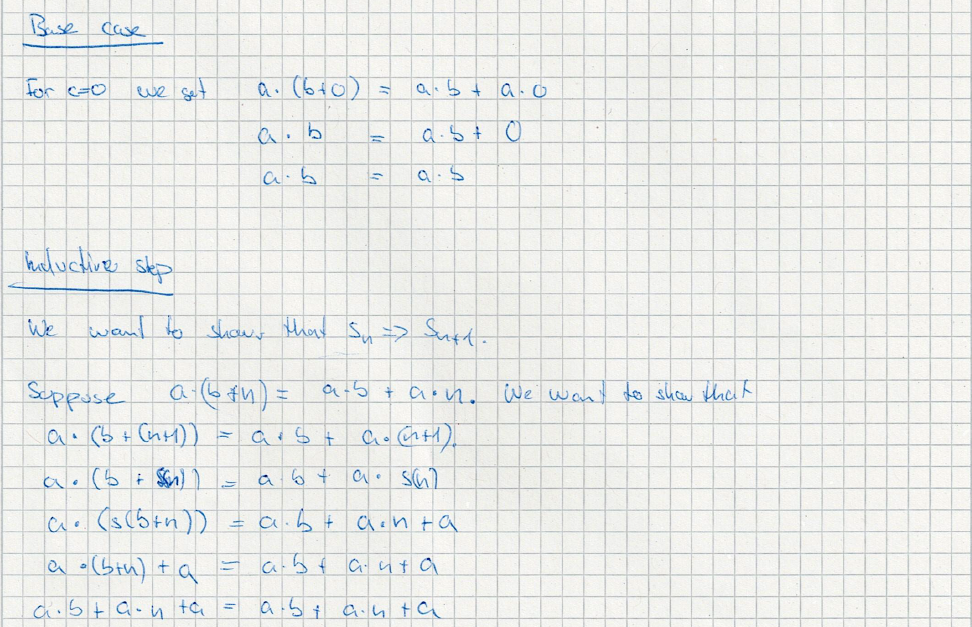 Base case
For c=0 we get a·(b+0) = a·b + a·0
a·b = a·b + 0
a·b = a·b
Inductive step
We want to show that Sn => Sn+1.
Suppose a·(b+n) = a·b + a·n. We want to show that
a·(b+(n+1)) = a·b + a·(n+1).
a·(b + S(n)) = a·b + a·S(n)
a·(S(b+n)) = a·b + a·n + a
a·(b+n) + a = a·b + a·n + a
a·b + a·n + a = a·b + a·n + a